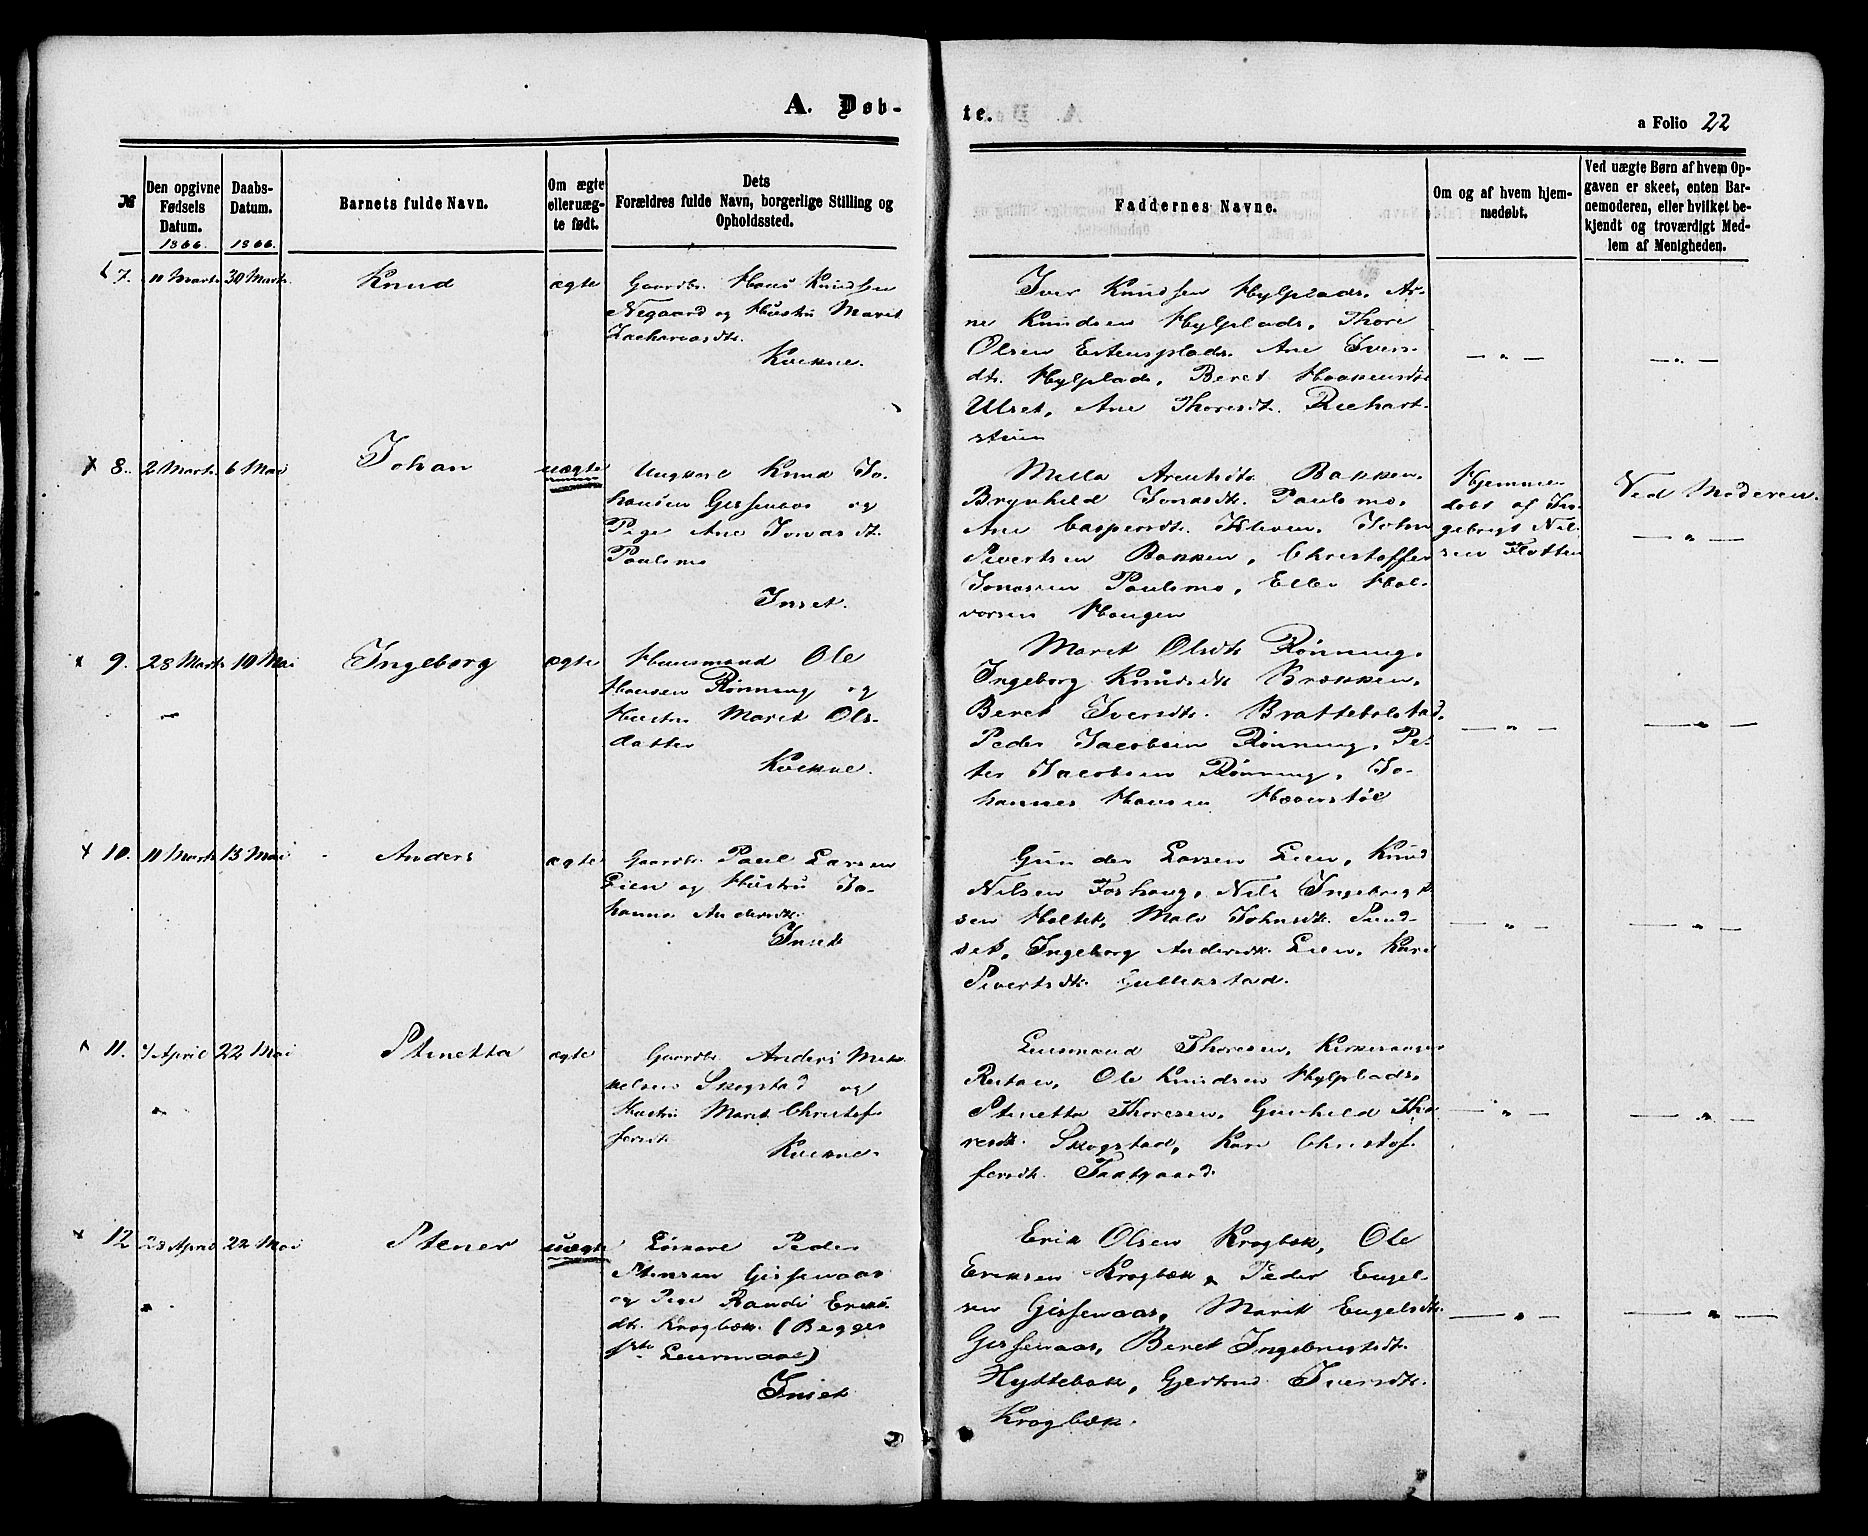 A. Døb-
te.
a Folio 22
№
Den opgivne
Fødsels
Datum.
1866.
Daabs-
Datum.
1866.
Barnets fulde Navn.
Om ægte
elleruæg-
te født.
Dets
Forældres fulde Navn, borgerlige Stilling og
Opholdssted.
Faddernes Navne.
Om og af hvem hjem-
medøbt.
Ved uægte Børn af hvem Op-
gaven er skeet, enten Bar-
nemoderen, eller hvilket be-
kjendt og troværdigt Med-
lem af Menigheden.
7. 11 Marts 30 Marts Knud ægte
Gaardbr. Hans Knudsen
Negaard og Hustru Marit
Zachariasdtr.
Kvikne.
Iver Knudsen Hylplads, Ar-
ne Knudsen Hylplads, Thore
Olsen Estensplads. Ane Ivers-
dtr. Hylplads, Beret Haakensdtr
Ulset, Ane Thoresdt.
— " —
— " —
8. 2 Marts 6 Mai Johan uægte
Ungkarl Knud Jo-
hansen Gissenaas og
Pige Ane Jonasdt.
Paulsmo
Inset.
Arentsdtr Bakken,
Brynhild Jonasdt. Paulsmo,
Ane Caspersdt. Kleven, John
Sivertsen Bakken, Christoffer
Jonassen Paulsmo, Hal-
vorsen Haugen
Hjemme-
døbt af In-
gebrigt Nil-
sen Flotten
Ved Moderen.
— " —
9. 28 Marts 10 Mai Ingeborg ægte
Huusmand Ole
Hansen Rønning og
Hustru Marit Ols-
datter
Kvikne.
Marit Olsdtr Rønning,
Ingeborg Knudsdtr Brækken,
Beret Iversdt.
Peder Jacobsen Rønning, Pe-
ter Jacobsen Rønning, Jo-
hannes Hansen
— " —
— " —
10. 11 Marts 13 Mai Anders ægte
Gaardbr. Paul Larsen
Lien og Hustru Jo-
hanna Andersdtr.
Inset
Gunder Larsen Lien, Knud
Nilsen Forhaug, Nils Ingebrigt-
sen Holtet, Johnsdtr.
Ingeborg Andersdtr Lien, Kari
Sivertsdtr. Gullikstad.
— " —
— " —
11. 7 April 22 Mai Stinetta ægte
Gaardbr. Anders Mik-
kelsen Skogstad og
Hustru Marit Christof-
fersdt.
Kvikne.
Thoresen, Kirkesanger
Ole Knudsen Hylplads,
Stinetta Thoresen, Gunhild Tho-
resdt. Skogstad, Kari Christof-
fersdt.
— " —
— " —
12 28 April 22 Mai Stener uægte
Peder
Stensen Gissenaas
og Pige Randi Eriks-
dt. Krogbæk. (Begges
1ste Leiermaal)
Inset
Erik Olsen Krogbæk, Ole
Eriksen Krogbæk, Peder Engel-
sen Gissenaas, Marit Engelsdt.
Gissenaas, Beret Ingebrigtsdt.
Hyttebak, Gjertrud Iversdt.
Krogbæk.
— " —
— " —